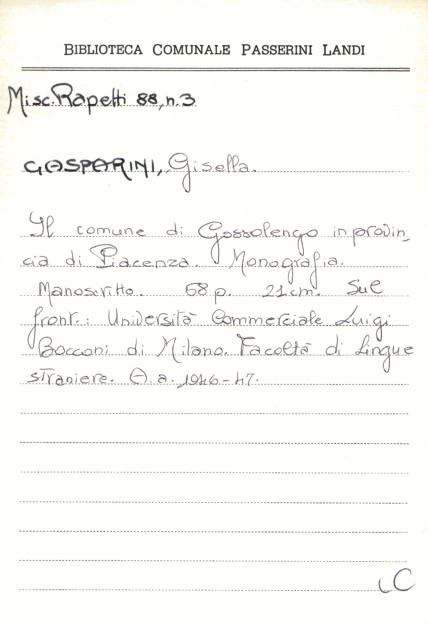 BIBLIOTECA COMUNALE PASSERINI LANDI
Misc. Rapetti 88, n. 3
GASPARINI, Gisella.
Il comune di Gossolengo in provin_
cia di Piacenza. Monografia.
Manoscritto. 68 p. 21 cm. Sul
front.: Università Commerciale Luigi
Bocconi di Milano. Facoltà di Lingue
straniere. A. a. 1946-47.